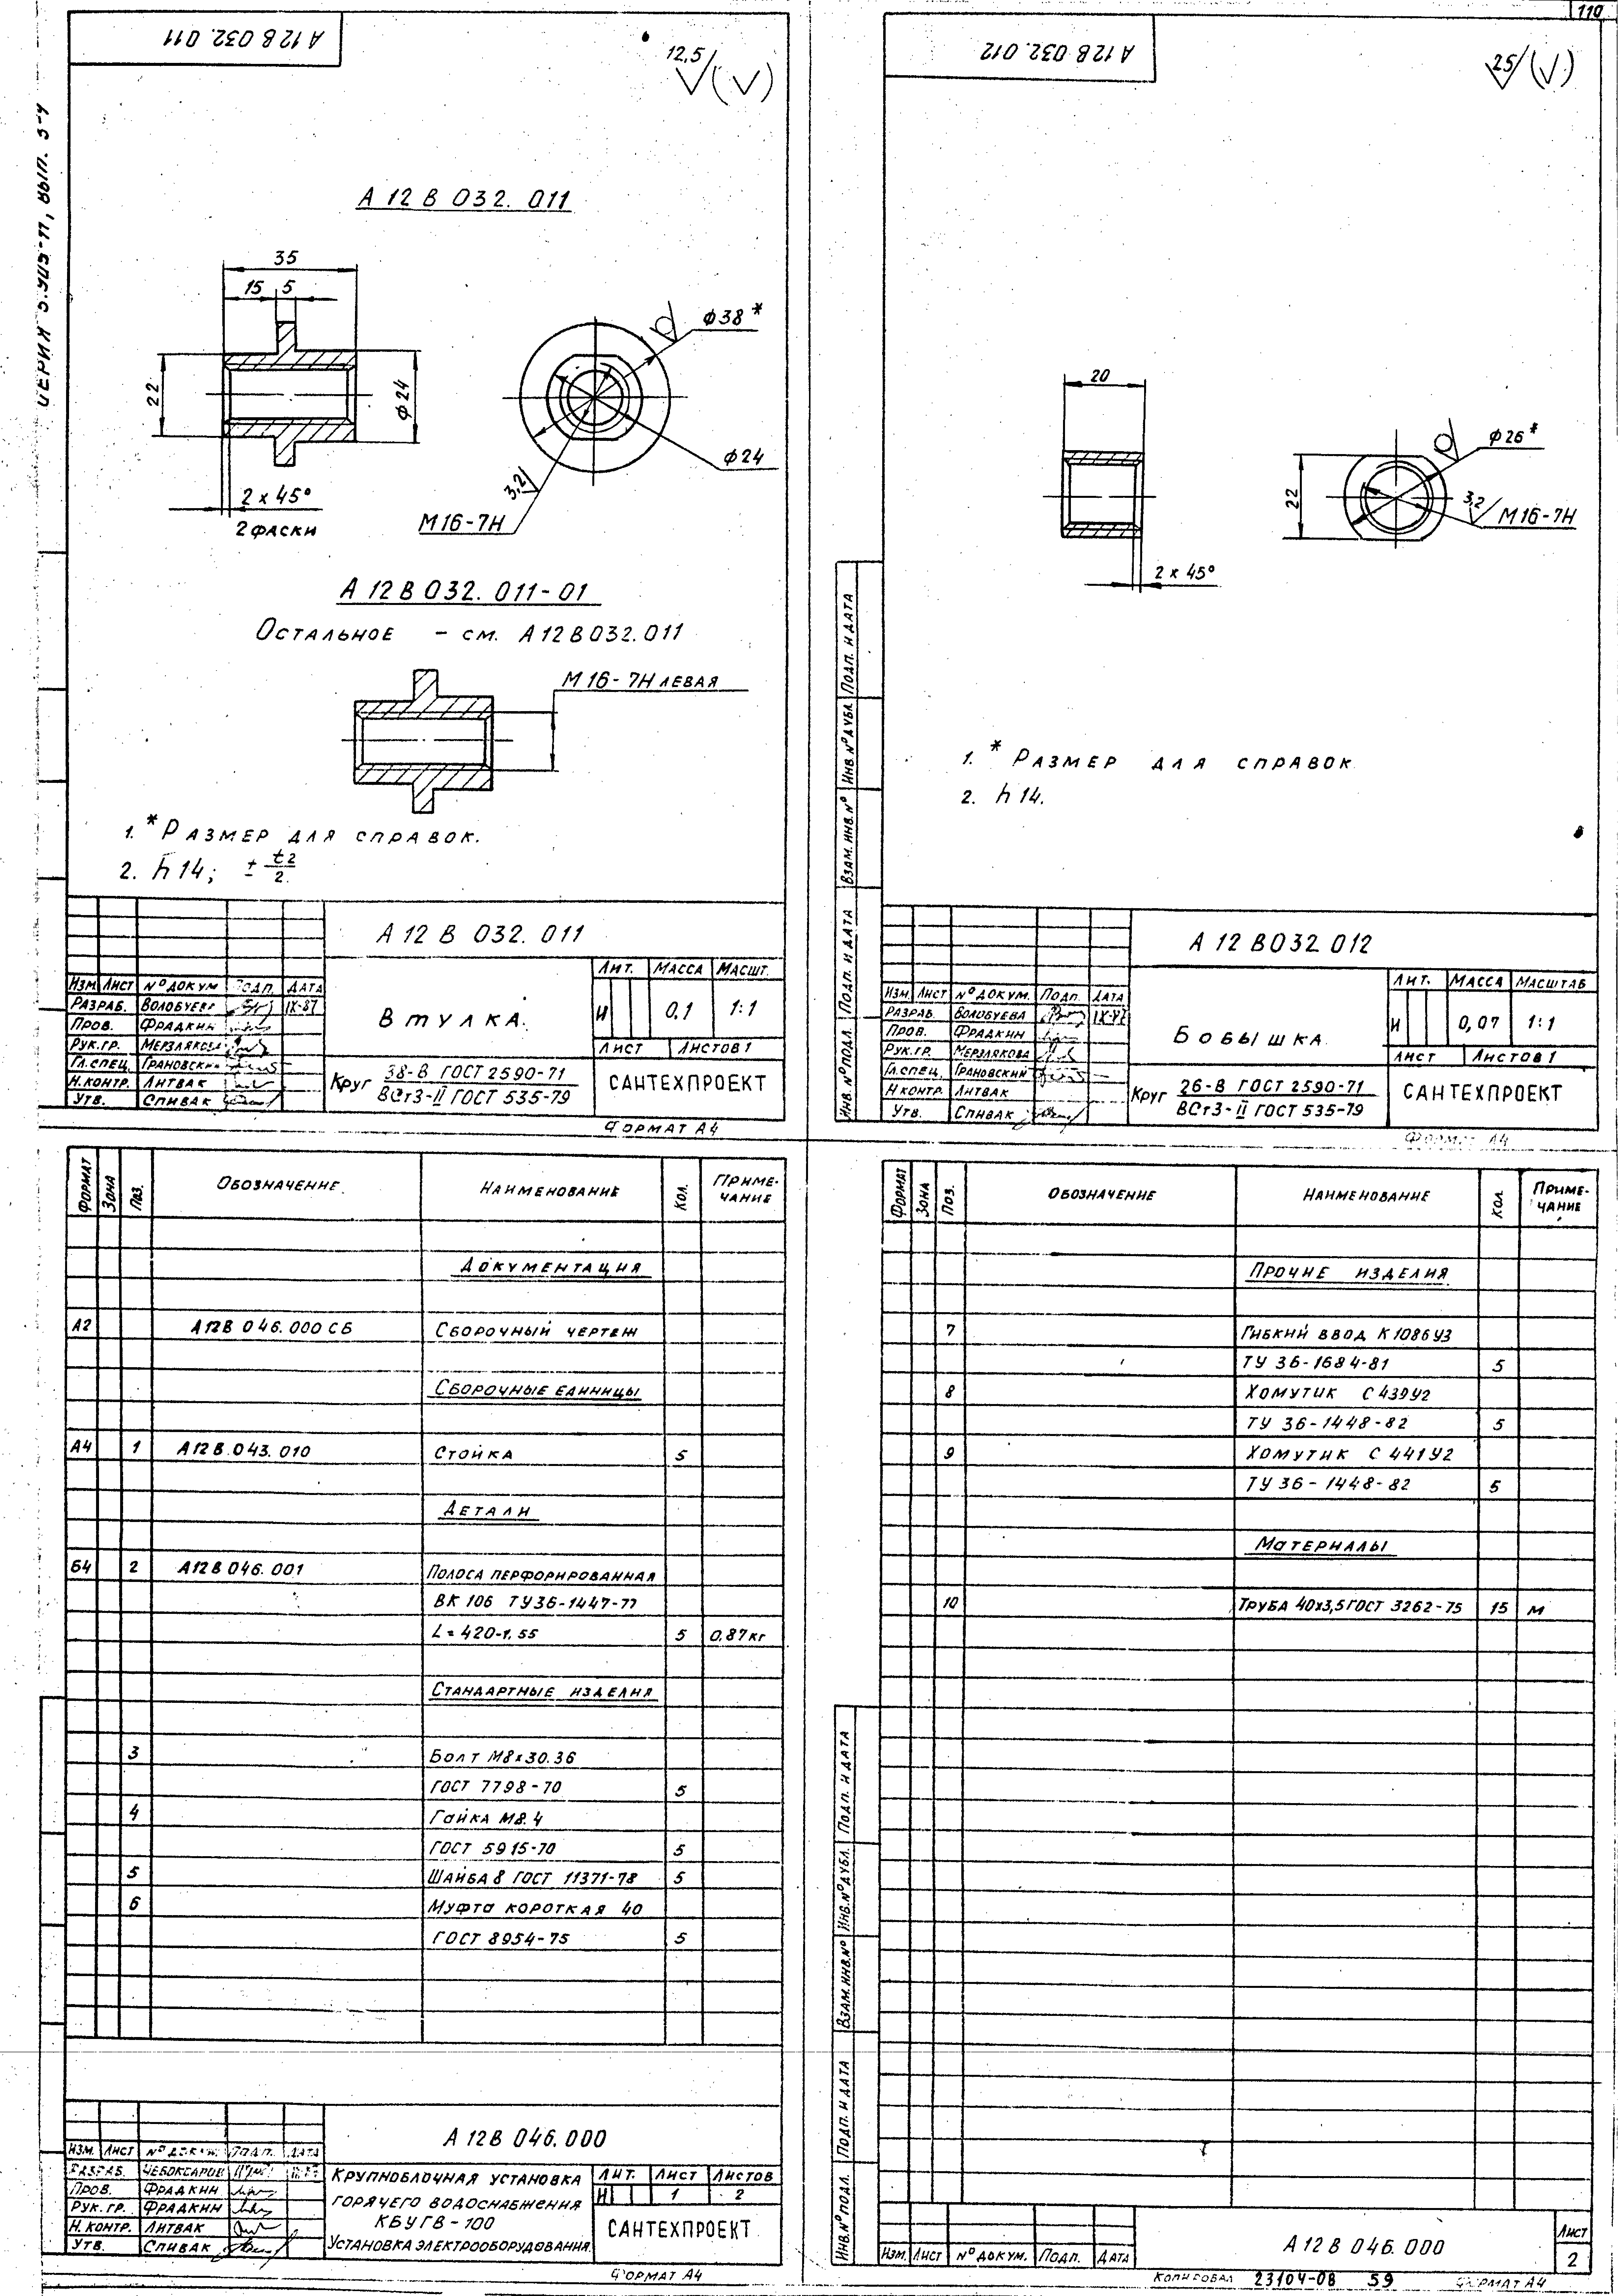 110
СЕРИЯ 5.905-11, ВЫП. 5-4
А 12 В 032. 011
12,5
А 12 В 032. 011
35
15 5
22
ф 24
2 х 45°
2 ФАСКИ
ф38*
ф24
3,2
М 16-7Н
А 12 В 032. 011-01
ОСТАЛЬНОЕ - СМ. А 12 В 032.011
М 16-7Н ЛЕВАЯ
1. * РАЗМЕР ДЛЯ СПРАВОК.
2. h 14; ± t2/2
А 12 В 032. 011
ЛИТ. МАССА МАСШТ.
И 0,1 1:1
ВТУЛКА.
ЛИСТ ЛИСТОВ 1
ИЗМ. ЛИСТ № ДОКУМ ПОДП. ДАТА
РАЗРАБ. ВОЛОБУЕВА IX-87
ПРОВ. ФРАДКИН
РУК.ГР. МЕРЗЛЯКОВА
ГЛ.СПЕЦ. ГРАНОВСКИЙ
Н.КОНТР. ЛИТВАК
УТВ. СПИВАК
КРУГ 38-В ГОСТ 2590-71
ВСт3-II ГОСТ 535-79
САНТЕХПРОЕКТ
ФОРМАТ А4
А 12 В 032. 012
25
20
2 х 45°
22
ф 26*
3,2
М 16-7Н
1. * РАЗМЕР ДЛЯ СПРАВОК
2. h 14.
ИНВ. № ПОДЛ. ПОДП. И ДАТА ВЗАМ. ИНВ. № ИНВ. № ДУБЛ. ПОДП. И ДАТА
А 12 В032 012
ЛИТ. МАССА МАСШТАБ
И 0,07 1:1
БОБЫШКА.
ЛИСТ ЛИСТОВ 1
ИЗМ. ЛИСТ № ДОКУМ. ПОДП. ДАТА
РАЗРАБ. ВОЛОБУЕВА IX-87
ПРОВ. ФРАДКИН
РУК.ГР. МЕРЗЛЯКОВА
ГЛ.СПЕЦ. ГРАНОВСКИЙ
Н КОНТР. ЛИТВАК
УТВ. СПИВАК
КРУГ 26-В ГОСТ 2590-71
ВСт3-II ГОСТ 535-79
САНТЕХПРОЕКТ
ФОРМАТ А4
ФОРМАТ ЗОНА ПОЗ. ОБОЗНАЧЕНИЕ. НАИМЕНОВАНИЕ КОЛ. ПРИМЕ-
ЧАНИЕ
ДОКУМЕНТАЦИЯ
А2 А12В 046.000 СБ СБОРОЧНЫЙ ЧЕРТЕЖ
СБОРОЧНЫЕ ЕДИНИЦЫ
А4 1 А12В.043.010 СТОЙКА 5
ДЕТАЛИ
Б4 2 А12В 046.001 ПОЛОСА ПЕРФОРИРОВАННАЯ
ВК 106 ТУ36-1447-77
L=420-1.55 5 0.87кг
СТАНДАРТНЫЕ ИЗДЕЛИЯ
3 БОЛТ М8х30.36
ГОСТ 7798-70 5
4 ГАЙКА М8.4
ГОСТ 5915-70 5
5 ШАЙБА 8 ГОСТ 11371-78 5
6 МУФТА КОРОТКАЯ 40
ГОСТ 8954-75 5
А 12В 046.000
ИЗМ. ЛИСТ № ДОКУМ. ПОДП. ДАТА
РАЗРАБ. ЧЕБОКСАРОВ
ПРОВ. ФРАДКИН
РУК. ГР. ФРАДКИН
Н. КОНТР. ЛИТВАК
УТВ. СПИВАК
КРУПНОБЛОЧНАЯ УСТАНОВКА
ГОРЯЧЕГО ВОДОСНАБЖЕНИЯ
КБУГВ-100
УСТАНОВКА ЭЛЕКТРООБОРУДОВАНИЯ
ЛИТ. ЛИСТ ЛИСТОВ
И 1 2
САНТЕХПРОЕКТ
ФОРМАТ А4
ФОРМАТ ЗОНА ПОЗ. ОБОЗНАЧЕНИЕ НАИМЕНОВАНИЕ КОЛ. ПРИМЕ-
ЧАНИЕ
ПРОЧИЕ ИЗДЕЛИЯ
7 ГИБКИЙ ВВОД К1086У3
ТУ 36-1684-81 5
8 ХОМУТИК С439У2
ТУ 36-1448-82 5
9 ХОМУТИК С 441У2
ТУ 36-1448-82 5
МАТЕРИАЛЫ
10 ТРУБА 40х3,5 ГОСТ 3262-75 15 М
ИНВ. № ПОДЛ. ПОДП. И ДАТА ВЗАМ. ИНВ. № ИНВ. № ДУБЛ. ПОДП. И ДАТА
ИЗМ. ЛИСТ № ДОКУМ. ПОДП. ДАТА
А 12 В 046.000
ЛИСТ
2
КОПИРОВАЛ 23104-08 59 ФОРМАТ А4